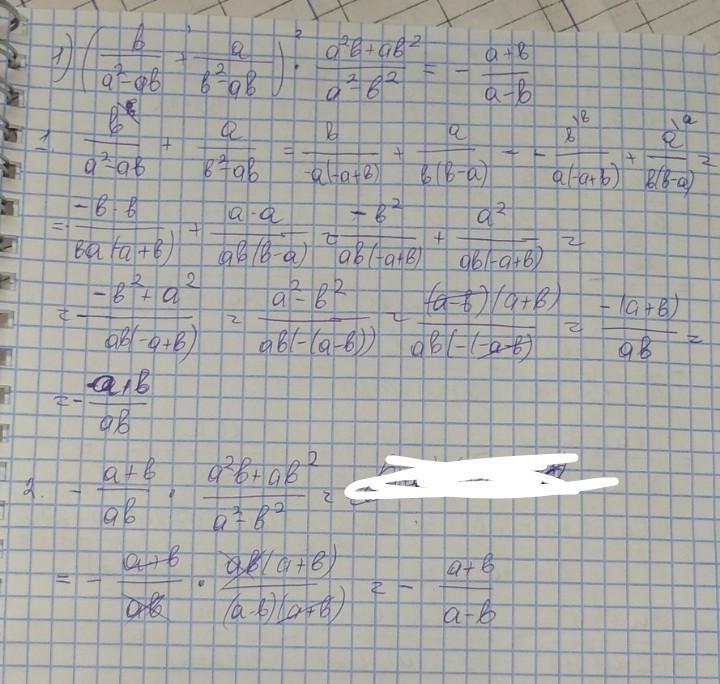 1) (b/(a²-ab) + a/(b²-ab)) · (a²b+ab²)/(a²-b²) = - (a+b)/(a-b)
1. b/(a²-ab) + a/(b²-ab) = b/(-a(-a+b)) + a/(b(b-a)) = - b/(a(-a+b)) + a/(b(b-a)) =
= (-b·b)/(ba(a+b)) + (a·a)/(ab(b-a)) = (-b²)/(ab(-a+b)) + a²/(ab(-a+b)) =
= (-b²+a²)/(ab(-a+b)) = (a²-b²)/(ab(-(a-b))) = ((a-b)(a+b))/(ab(-(-a-b)) = (-(a+b))/(ab) =
= - (a+b)/(ab)
2. - (a+b)/(ab) · (a²b+ab²)/(a²-b²) =
= - (a+b)/(ab) · (ab(a+b))/((a-b)(a+b)) = - (a+b)/(a-b)